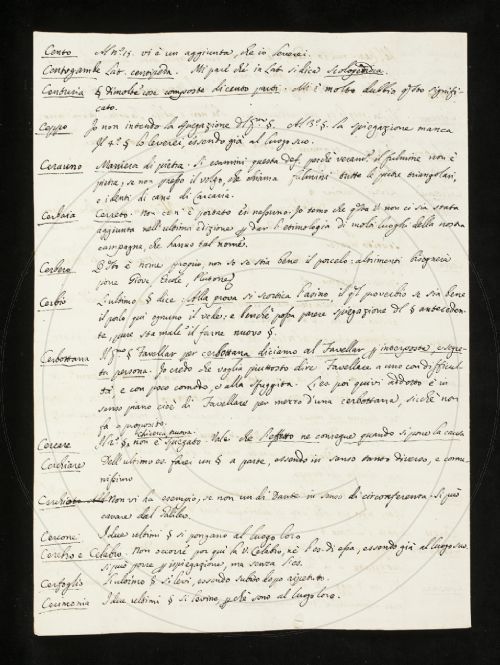 Cento Al n.º 15. vi è un aggiunta, che io leverei.
Centogambe Lat. centipeda. Mi pare che in Lat. si dica Scolopendra.
Centuria § di molte cose composte di cento parti. Mi è molto dubbio qsto signifi-
cato.
Ceppo Io non intendo la spiegazione del pmo §. Al 3º § la spiegazione manca
Il 4º § lo leverei, essendo già al luogo suo.
Ceraunio Maniera di pietra. Si esamini questa def. poiché il fulmine non è
pietra, se non presso il volgo, che chiama fulmini tutte le pietre triangolari,
e i denti di cane di Carcaria.
Cerbaia Cerreto. Non con è portato es. nessuno. Io temo che qsta v. non ci sia stata
aggiunta nell'ultima edizione p dar l'etimologia di molti luoghi della nostra
campagna, che hanno tal nome.
Cerbero è nome proprio, non so se stia bene il porcelo: altrimenti bisogneria
porre Giove, Ercole, Plutone
Cerbio L'ultimo § dice: Alla prova si scortica l'asino il ql proverbio se sia bene
il polo può ognuno il vede: e benchè possa parere spiegazione del § anteceden-
te, pure sta male il farne nuovo §.
Cerbottana Il pmo § Favellar per cerbottana diciamo al Favellar p interposta, e segre-
ta persona. Io credo che voglia piuttosto dire Favellare a uno con difficul-
tà, e con poco comodo, o alla sfuggita. L'es. poi quivi addotto è in
senso piano cioè di Favellare per mezzo d'una cerbottana, sicchè non
fa a proposito.
Cercare N.º §, non è spiegato. Vale che l'effetto ne consegue quando si pone la causa
Cerchiare Dell'ultimo es. farei un § a parte, essendo in senso tanto diverso, e comu-
nissimo
Cerchio Non vi ha esempio, se non un di Dante in senso di circonferenza. Si può
cavare dal Galileo.
Cercone I due ultimi § si pongano al luogo loro
Cerebro e Celabro. Non occorre por qui la V. Celabro, nè l'es. di essa, essendo già al luogo suo.
Si può porre p ispiegazione, ma senza l'es.
Cerfoglio L'ultimo § si levi, essendo subito dopo ripetuto.
Cerimonia I due ultimi § si levino, p chè sono al luogo loro.